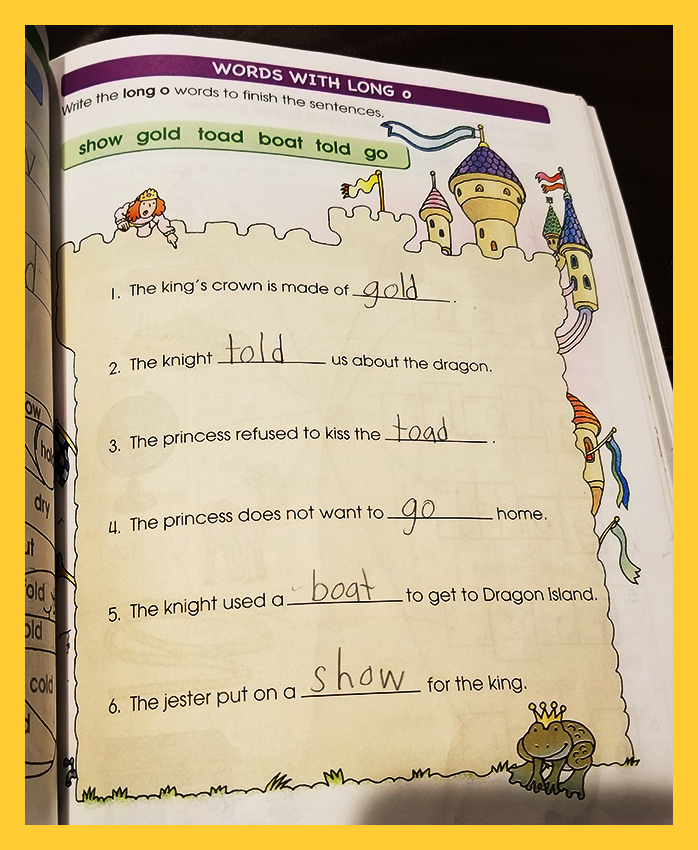 WORDS WITH LONG o
Write the long o words to finish the sentences.
show gold toad boat told go
1. The king's crown is made of gold.
2. The knight told us about the dragon.
3. The princess refused to kiss the toad.
4. The princess does not want to go home.
5. The knight used a boat to get to Dragon Island.
6. The jester put on a show for the king.
ow
dry
old
old
cold